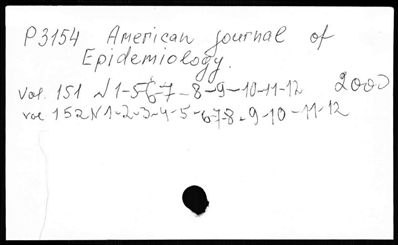 P3154 American journal of
Epidemiology.
vol. 151 N 1-5-6-7-8-9-10-11-12 2000
vol 152 N 1-2-3-4-5-6-7-8-9-10-11-12